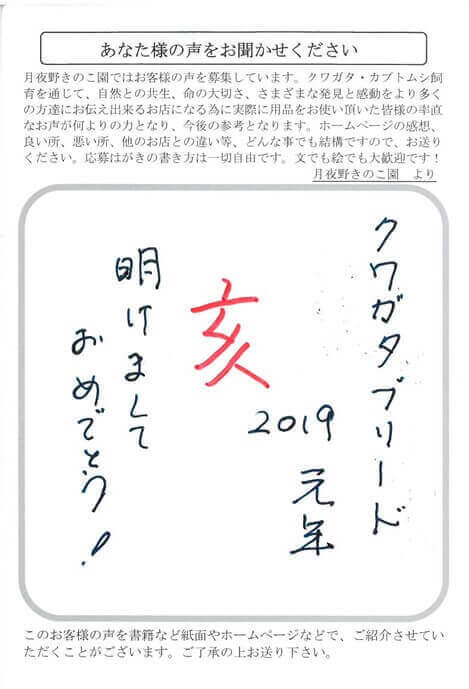 あなた様の声をお聞かせください
月夜野きのこ園ではお客様の声を募集しています。クワガタ・カブトムシ飼
育を通じて、自然との共生、命の大切さ、さまざまな発見と感動をより多く
の方達にお伝え出来るお店になる為に実際に用品をお使い頂いた皆様の率直
なお声が何よりの力となり、今後の参考となります。ホームページの感想、
良い所、悪い所、他のお店との違い等、どんな事でも結構ですので、お送り
ください。応募はがきの書き方は一切自由です。文でも絵でも大歓迎です！
月夜野きのこ園　より
クワガタブリード
2019 元年
亥
明けまして
おめでとう！
このお客様の声を書籍など紙面やホームページなどで、ご紹介させてい
ただくことがございます。ご了承の上お送り下さい。